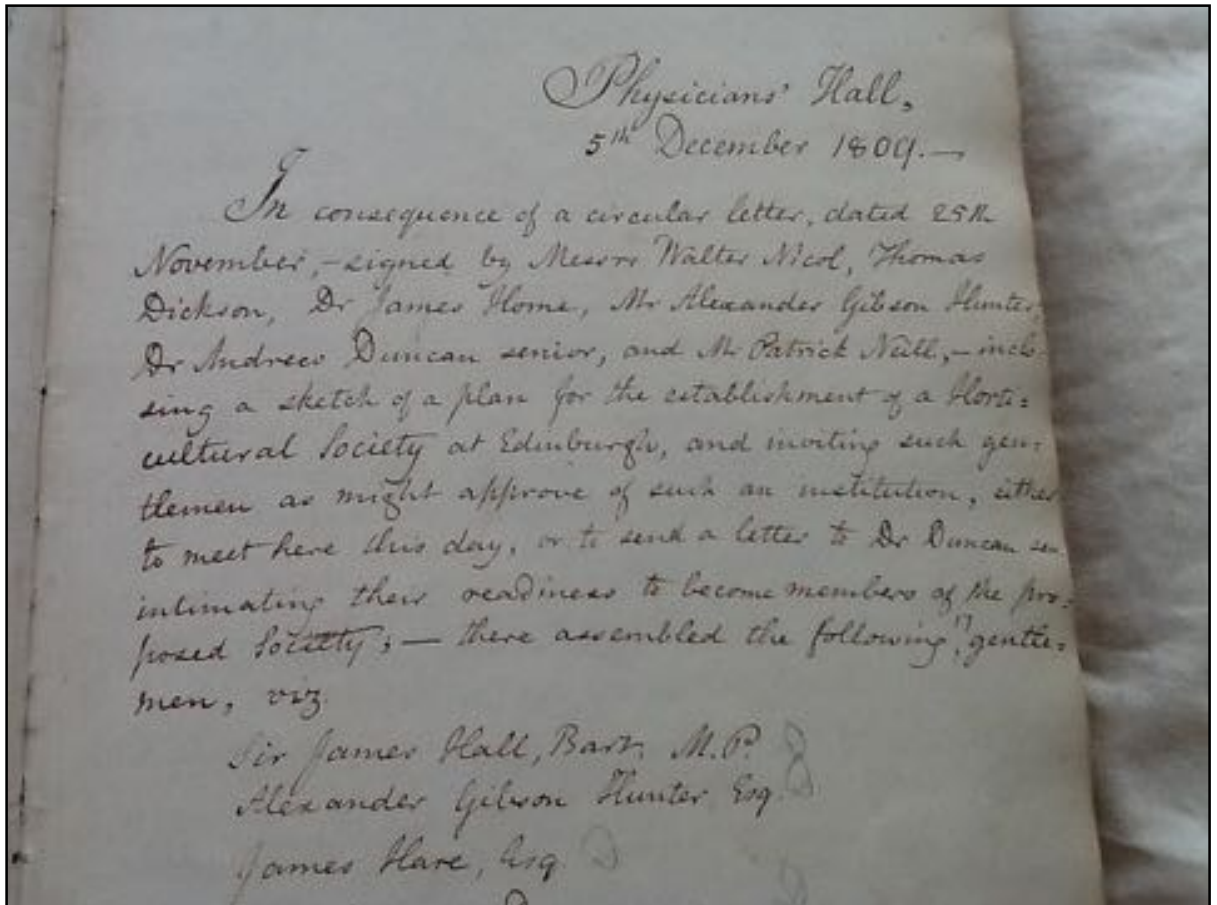 Physicians' Hall,
5th December 1809.—
In consequence of a circular letter, dated 25th
November,—signed by Messrs Walter Nicol, Thomas
Dickson, Dr James Home, Mr Alexander Gibson Hunter,
Dr Andrew Duncan senior, and Mr Patrick Neill,—inclo-
sing a sketch of a plan for the establishment of a Horti=
cultural Society at Edinburgh, and inviting such gen=
tlemen as might approve of such an institution, either
to meet here this day, or to send a letter to Dr Duncan sen.
intimating their readiness to become members of the pro=
posed Society;— there assembled the following 17 gentle=
men, viz.
Sir James Hall, Bart. M.P.
Alexander Gibson Hunter Esq.
James Hare, Esq